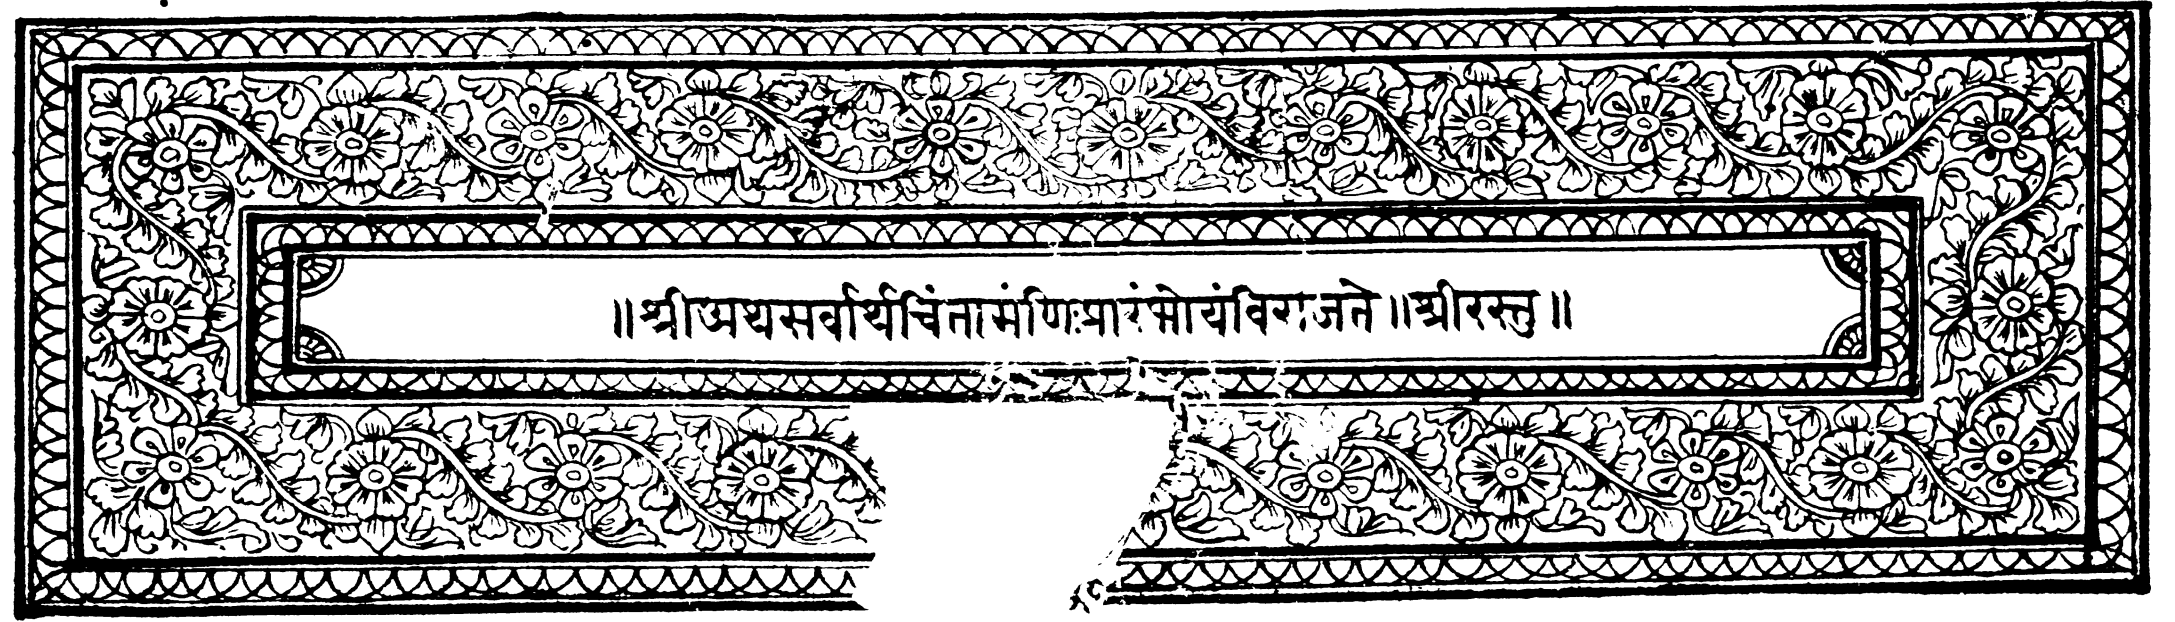 ॥श्रीअथसर्वार्थचिंतामंणिःप्रारंभोयंविराजते॥श्रीरस्तु॥